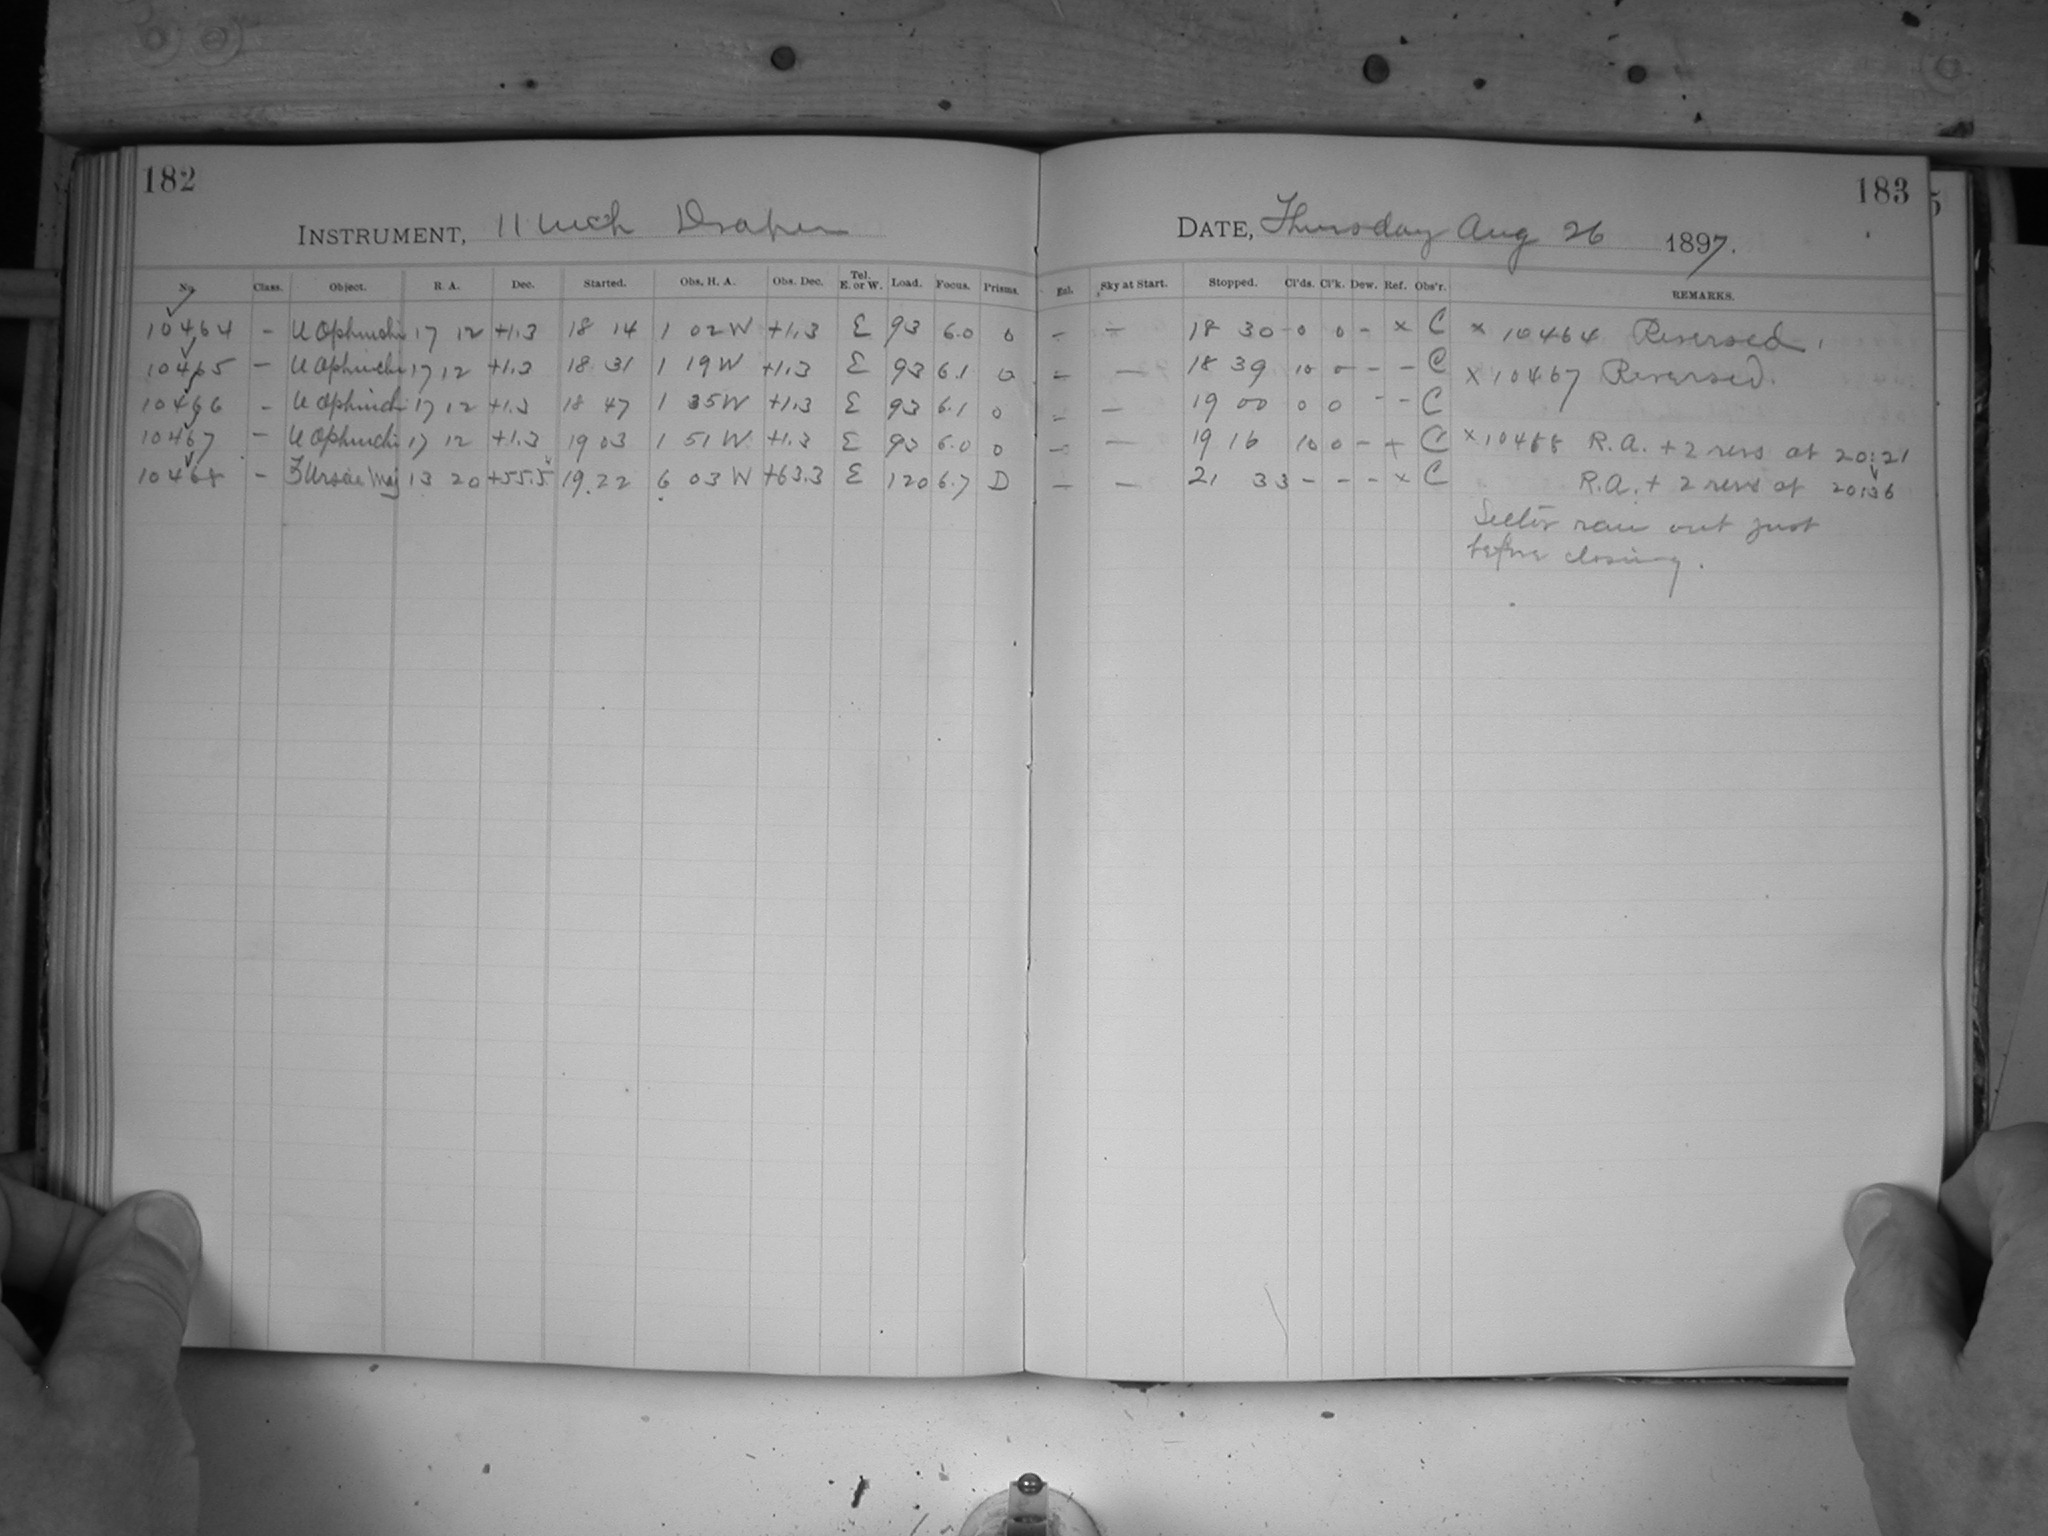 182
INSTRUMENT, 11 inch Draper
No. Class. Object. R. A. Dec. Started. Obs. H. A. Obs. Dec. Tel. E. or W. Load. Focus. Prisms.
10464 - U Ophiuchi 17 12 +1.3 18 14 1 02 W +1.3 E 93 6.0 0
10465 - U Ophiuchi 17 12 +1.3 18 31 1 19 W +1.3 E 93 6.1 0
10466 - U Ophiuchi 17 12 +1.3 18 47 1 35 W +1.3 E 93 6.1 0
10467 - U Ophiuchi 17 12 +1.3 19 03 1 51 W +1.3 E 93 6.0 0
10468 - Ursae Maj 13 20 +55.5 19.22 6 03 W +63.3 E 120 6.7 D
183
DATE, Thursday Aug 26 1897.
Exl. Sky at Start. Stopped. Cl'ds. Cl'k. Dew. Ref. Obs'r. REMARKS.
- - 18 30 0 0 - x C x 10464 Reversed.
- - 18 39 10 0 - - C x 10467 Reversed.
- - 19 00 0 0 - - C
- - 19 16 10 0 - + C x 10468 R.A. + 2 revs at 20:21
- - 21 33 - - - x C R.A. + 2 revs at 20:36
Sector ran out just
before closing.